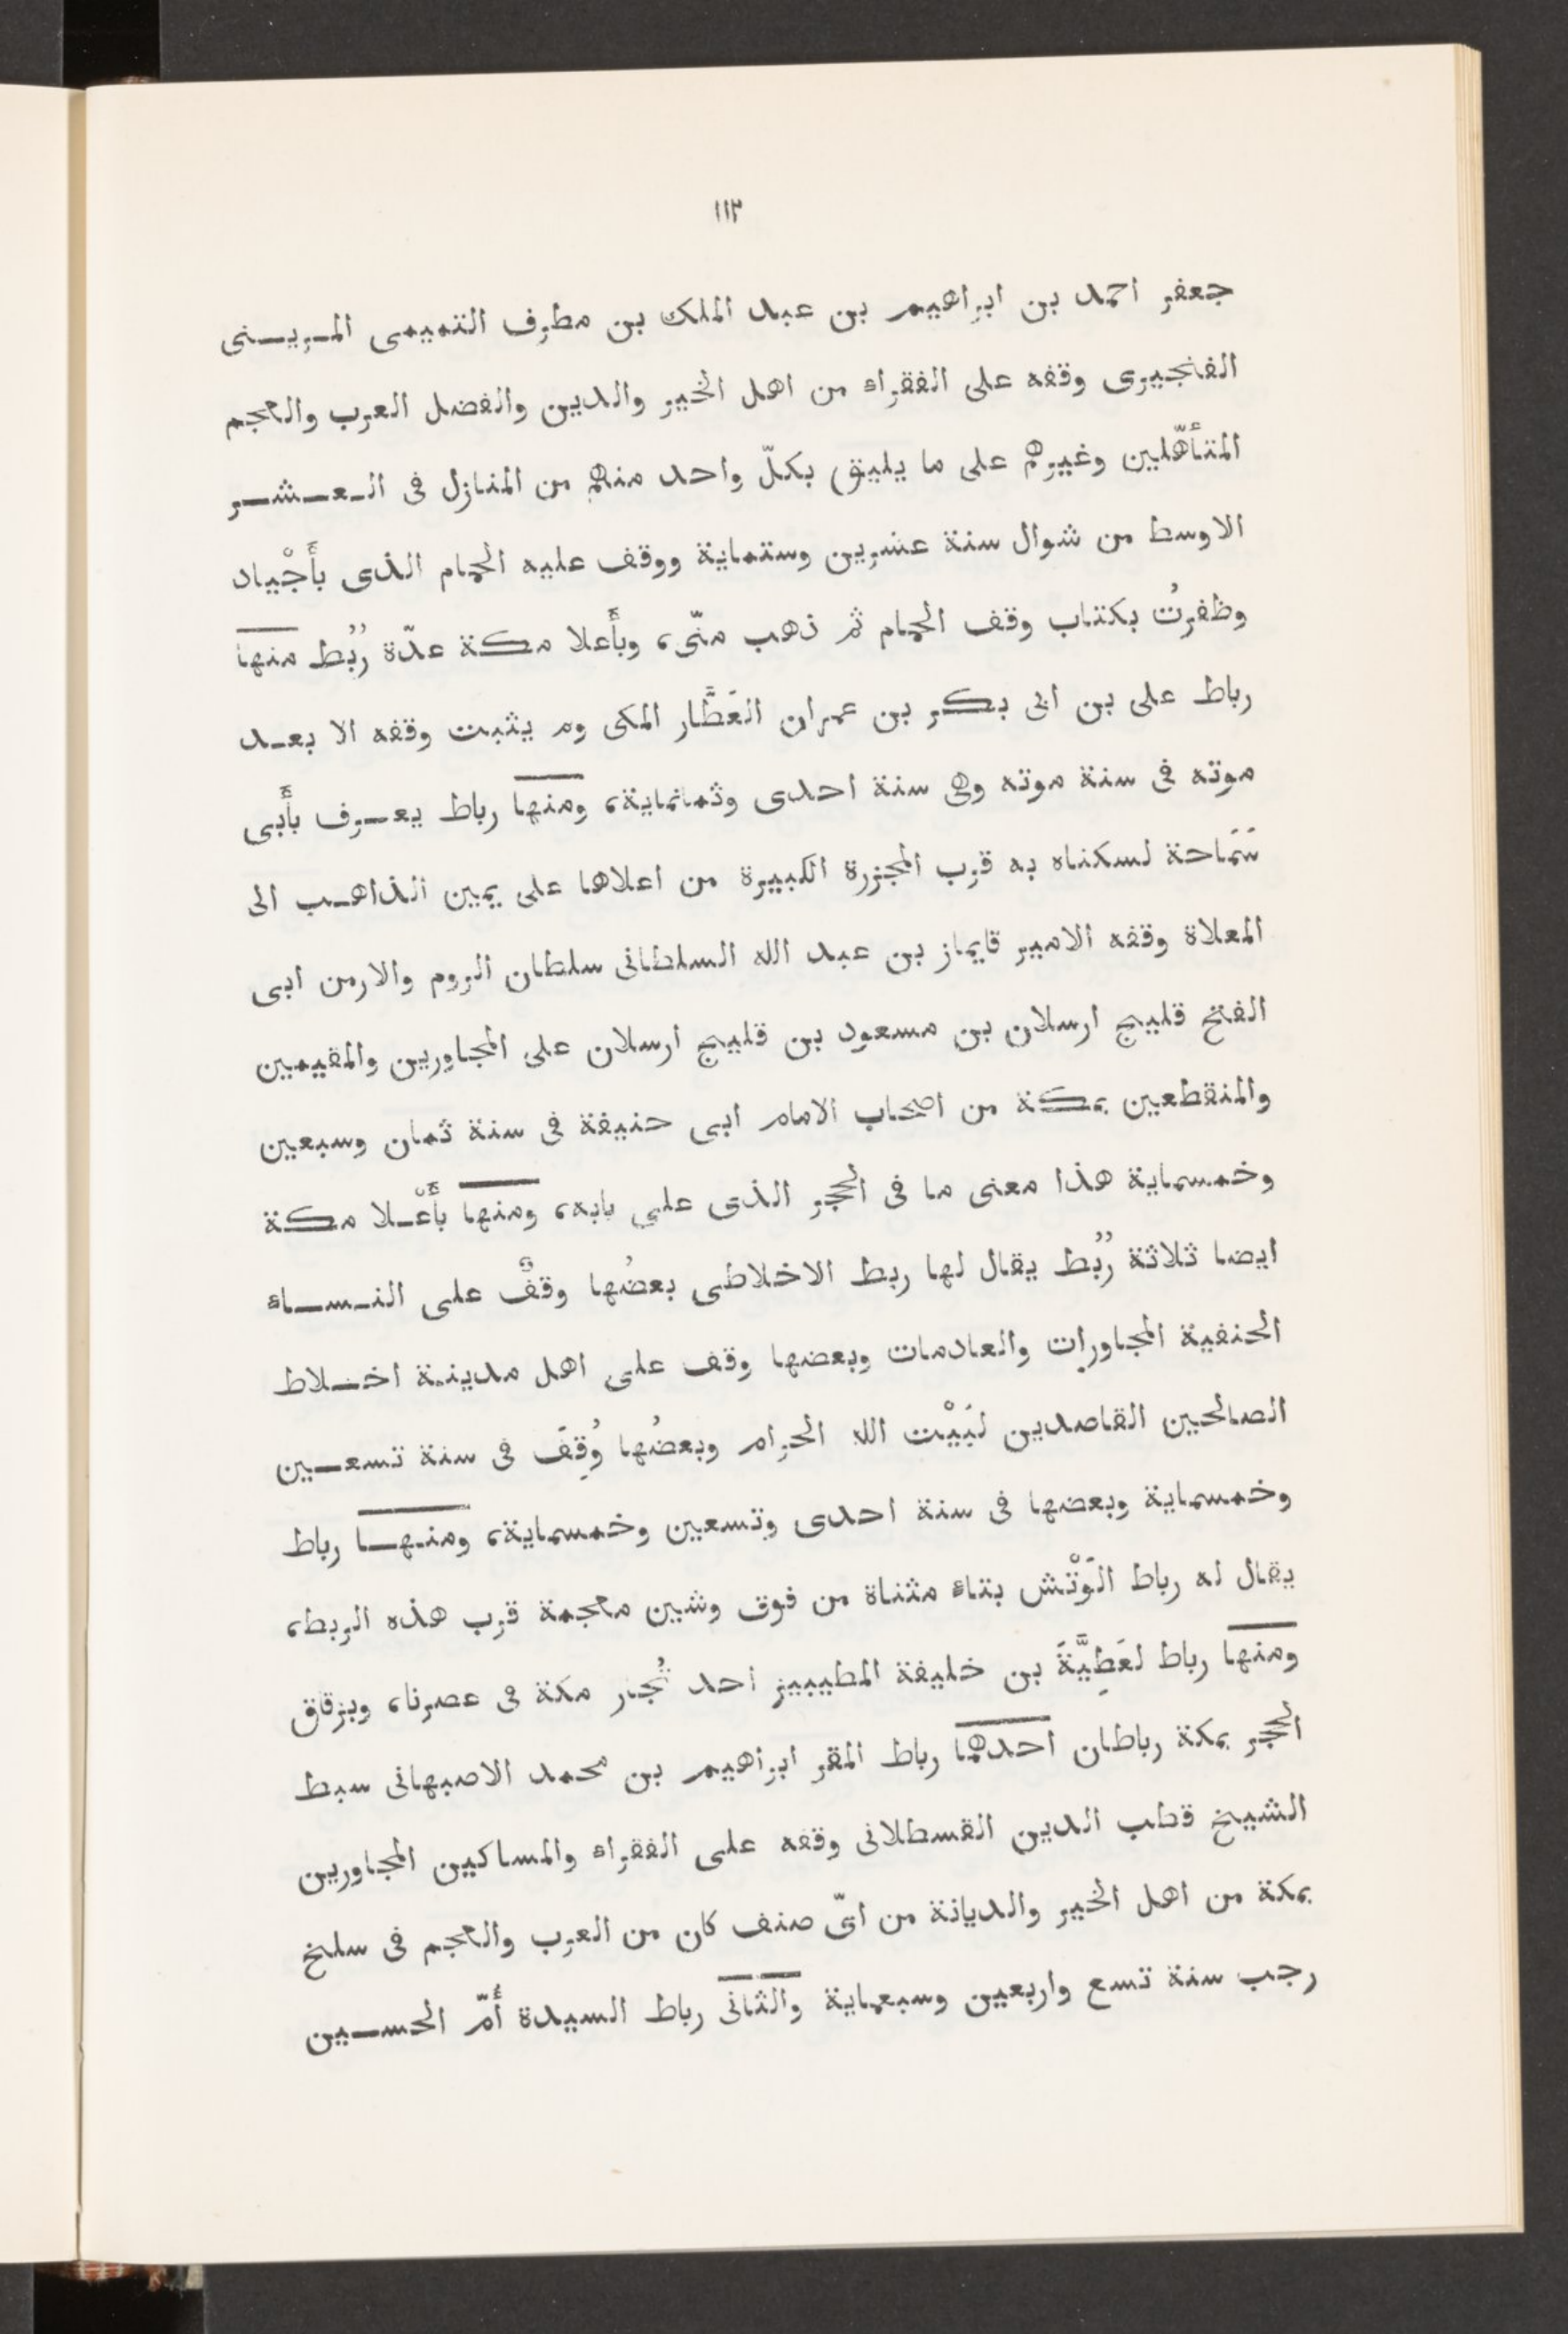 ١١٣
جعفر احمد بن ابراهيم بن عبد الملك بن مطرف التميمى المرينى
الفنجيرى وقفه على الفقراء من اهل الخير والدين والفضل العرب والعجم
المتأهّلين وغيرهم على ما يليق بكلّ واحد منهم من المنازل فى العشر
الاوسط من شوال سنة عشرين وستماية ووقف عليه الحمام الذى بأَجْياد
وظفرتُ بكتاب وقف الحمام ثم ذهب منّى، وبأَعلا مكة عدّة رُبُط منها
رباط على بن ابى بكر بن عمران العَطَّار المكى ولم يثبت وقفه الا بعد
موته فى سنة موته وهى سنة احدى وثمانماية، ومنها رباط يعرف بأَبى
سَمَاحة لسكناه به قرب المجزرة الكبيرة من اعلاها على يمين الذاهب الى
المعلاة وقفه الامير قايماز بن عبد الله السلطانى سلطان الروم والارمن ابى
الفتح قليج ارسلان بن مسعود بن قليج ارسلان على المجاورين والمقيمين
والمنقطعين بمكة من اصحاب الامام ابى حنيفة فى سنة ثمان وسبعين
وخمسماية هذا معنى ما فى الحجر الذى على بابه، ومنها بأَعْلا مكة
ايضا ثلاثة رُبُط يقال لها ربط الاخلاطى بعضُها وقفٌ على النساء
الحنفية المجاورات والعادمات وبعضها وقف على اهل مدينة اخلاط
الصالحين القاصدين لبَيْت الله الحرام وبعضُها وُقِفَ فى سنة تسعين
وخمسماية وبعضها فى سنة احدى وتسعين وخمسماية، ومنها رباط
يقال له رباط الوَتْش بتاء مثناة من فوق وشين معجمة قرب هذه الربط،
ومنها رباط لعَطِيَّةَ بن خليفة المطيبيز احد تُجار مكة فى عصرنا، وبزقاق
الحجر بمكة رباطان احدهما رباط المقر ابراهيم بن محمد الاصبهانى سبط
الشيخ قطب الدين القسطلانى وقفه على الفقراء والمساكين المجاورين
بمكة من اهل الخير والديانة من اىّ صنف كان من العرب والعجم فى سلخ
رجب سنة تسع واربعين وسبعماية والثانى رباط السيدة أُمّ الحسين